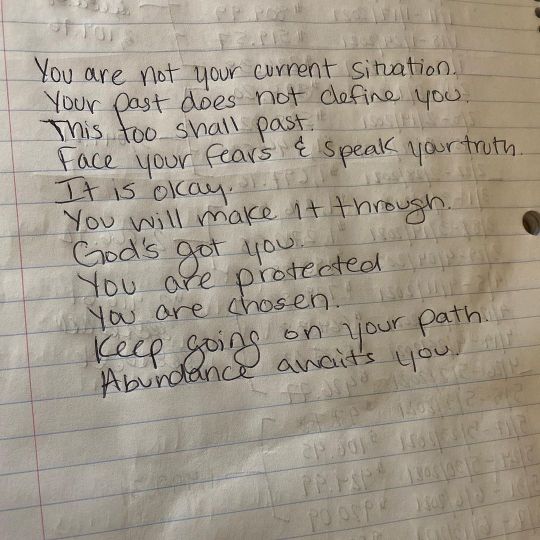 You are not your current situation.
Your past does not define you.
This too shall past.
Face your fears & speak your truth.
It is okay.
You will make it through.
God's got you.
You are protected
You are chosen.
Keep going on your path.
Abundance awaits you.